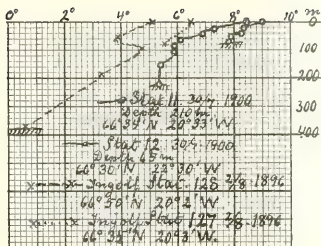 0° 2° 4° 6° 8° 10° m
0
100
200
300
400
Stat 11. 30/7. 1900
Depth 210 m
66°34' N 20°33' W
Stat 12. 30/7. 1900
Depth 65 m
66°30' N 22°30' W
Ingolf Stat. 128 2/8 1896
66°50' N 20°2' W
Ingolf Stat 127 2/8 1896
66°33' N 20°3' W.